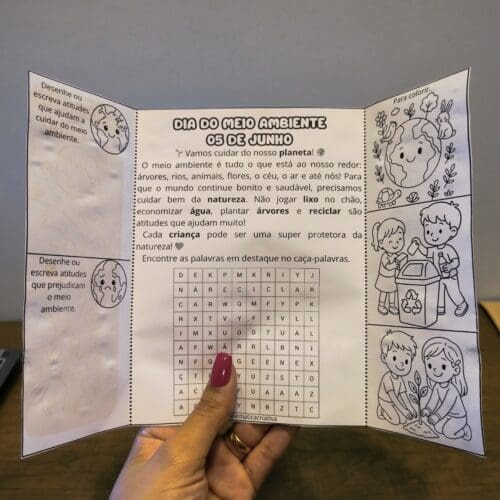 Desenhe ou
escreva atitudes
que ajudam a
cuidar do meio
ambiente.
Desenhe ou
escreva atitudes
que prejudicam
o meio
ambiente.
DIA DO MEIO AMBIENTE
05 DE JUNHO
Vamos cuidar do nosso planeta!
O meio ambiente é tudo o que está ao nosso redor:
árvores, rios, animais, flores, o céu, o ar e até nós! Para
que o mundo continue bonito e saudável, precisamos
cuidar bem da natureza. Não jogar lixo no chão,
economizar água, plantar árvores e reciclar são
atitudes que ajudam muito!
Cada criança pode ser uma super protetora da
natureza!
Encontre as palavras em destaque no caça-palavras.
D E K P M K R I Y J
N Á R E C I C L A R
C A R W Q M F Y P K
R X T V Y F X V L L
I M X U O D T U A L
A F W A R R L B N I
N F G E E N E X
Ç T Y U Z S T O
A U A A A Z
A Y N R Z T C
Para colorir: